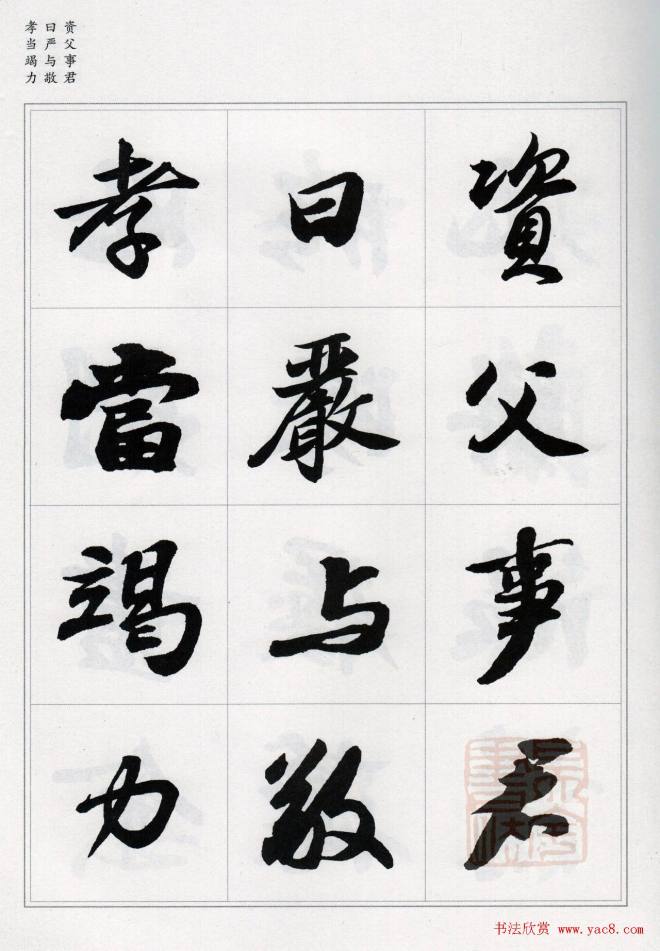 资父事君
曰严与敬
孝当竭力
資父事君
曰嚴与敬
孝當竭力
书法欣赏 www.yac8.com